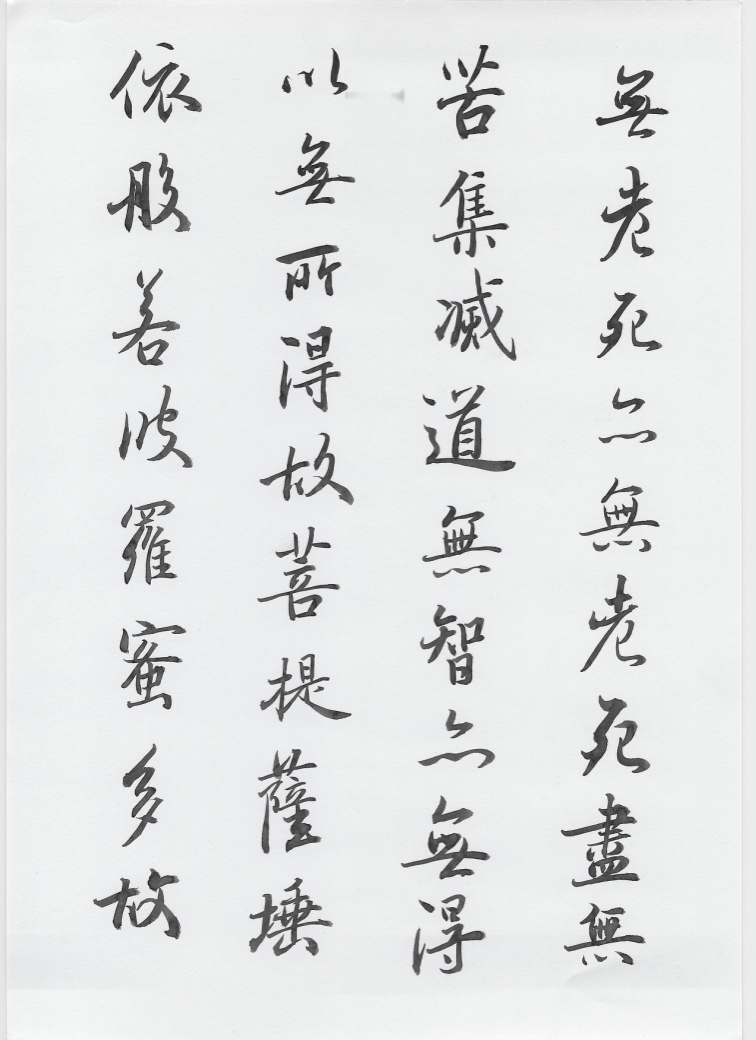 無老死亦無老死盡無
苦集滅道無智亦無得
以無所得故菩提薩埵
依般若波羅蜜多故